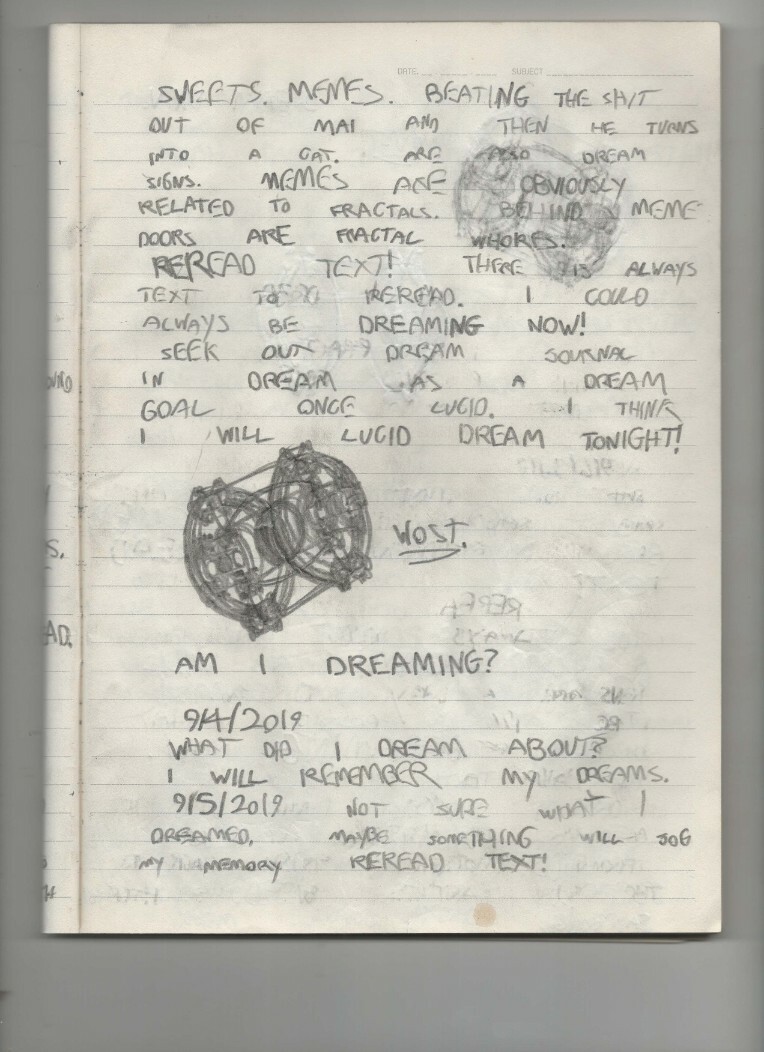 DATE SUBJECT
SWEETS. MEMES. BEATING THE SHIT
OUT OF MAI AND THEN HE TURNS
INTO A CAT. ARE ALSO DREAM
SIGNS. MEMES ARE OBVIOUSLY
RELATED TO FRACTALS. BEHIND MEME
DOORS ARE FRACTAL WHORES.
REREAD TEXT! THERE IS ALWAYS
TEXT TO REREAD. I COULD
ALWAYS BE DREAMING NOW!
SEEK OUT DREAM JOURNAL
IN DREAM AS A DREAM
GOAL ONCE LUCID. I THINK
I WILL LUCID DREAM TONIGHT!
WOST.
AM I DREAMING?
9/4/2019
WHAT DID I DREAM ABOUT?
I WILL REMEMBER MY DREAMS.
9/5/2019 NOT SURE WHAT I
DREAMED, MAYBE SOMETHING WILL JOG
MY MEMORY REREAD TEXT!